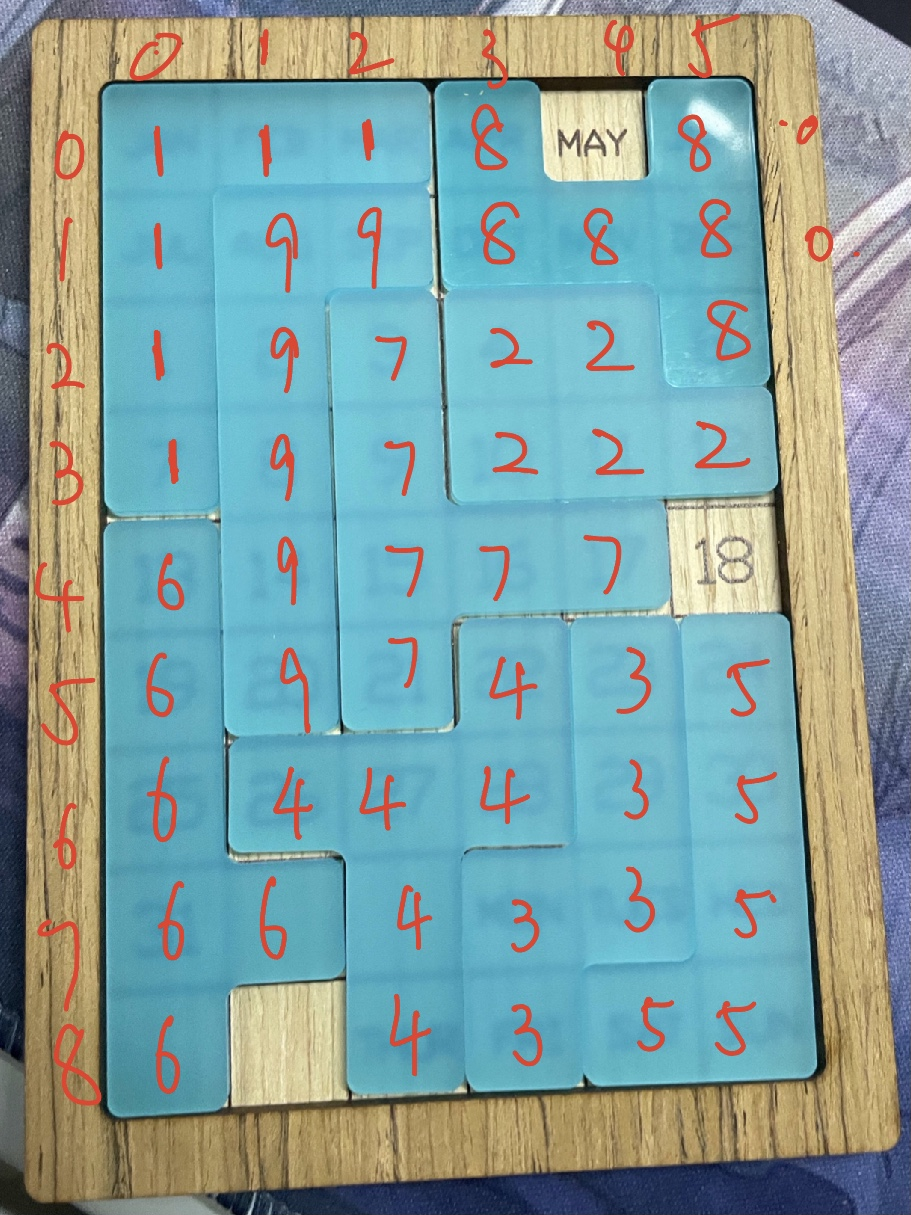 0 1 2 3 4 5
0 1 1 1 8 MAY 8 0
1 1 9 9 8 8 8 0
2 1 9 7 2 2 8
3 1 9 7 2 2 2
4 6 9 7 7 7 18
5 6 9 7 4 3 5
6 6 4 4 4 3 5
7 6 6 4 3 3 5
8 6 4 3 5 5